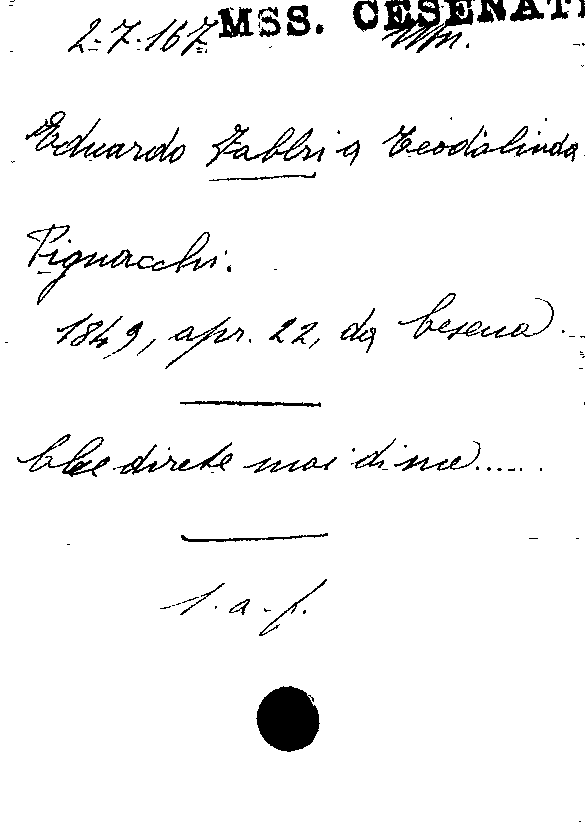 2-7-167 MSS. CESENATI
Eduardo Fabbri a Teodolinda
Pignocchi.
1849, apr. 22, da Cesena.
Che direte mai di me......
l. a. f.